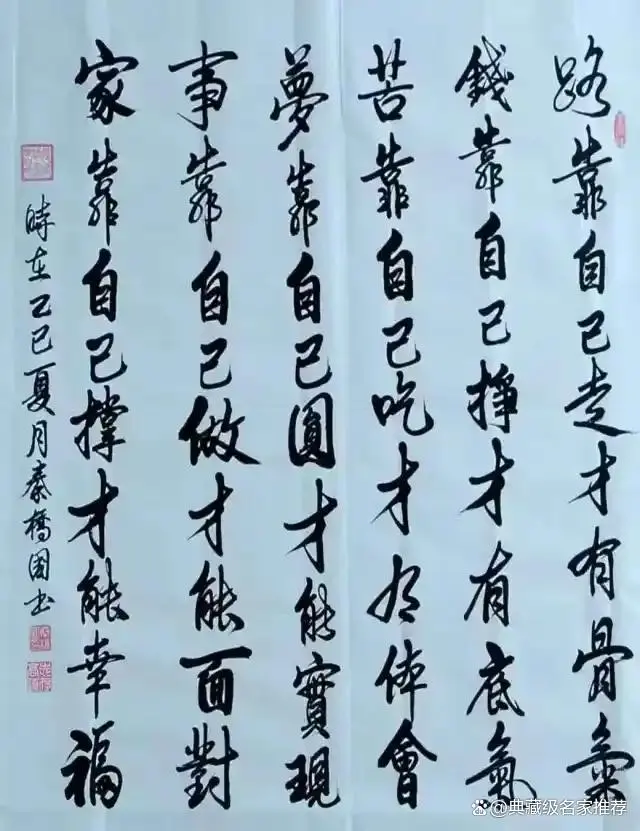 路靠自己走才有骨氣
錢靠自己掙才有底氣
苦靠自己吃才有体會
夢靠自己圓才能實現
事靠自己做才能面對
家靠自己撑才能幸福
時在乙巳夏月秦橋國书
@典藏级名家推荐